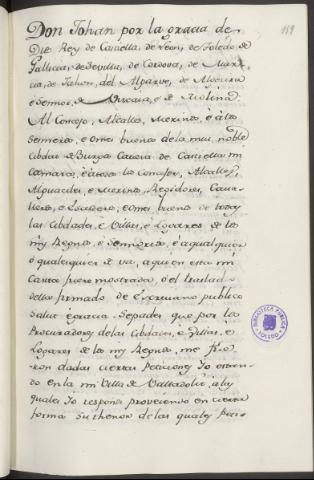 119
Don Johan por la gracia de
Dio Rey de Castiella, de Leon, de Toledo, de
Gallicia, de Sevilla, de Cordova, de Mur-
cia, de Jahen, del Algarve, de Algecira
e Sennor de Vizcaia, e de Molina.
Al Concejo, Alcalles, Merino, e à los
seinnores, e omes buenos de la mui noble
cibdat de Burgos Caveza de Castiella mi
camara, è à todos los Consejos, Alcalles,
Alguaciles, e Merinos, Regidores, Cava-
lleros, e Escuderos, e omes buenos de todas
las Cibdades, e Villas, e Logares de los
mis Regnos, e Sennorios, e à qualquier
ò qualesquier de vos, a quien esta mi
Carta fuere mostrada, ò el traslado
della firmado de Escrivano publico
salut e gracia. Sepades que por los
Procuradores de las Cibdades, e Villas, e
Logares de los mis Regnos, me fue-
ron dadas ciertas Peticiones Yo estan-
do en la mi Villa de Valladolid, a las
quales Yo respondi proveiendo en cierta
forma su thenor de las quales Peti-
BIBLIOTECA PUBLICA
TOLEDO